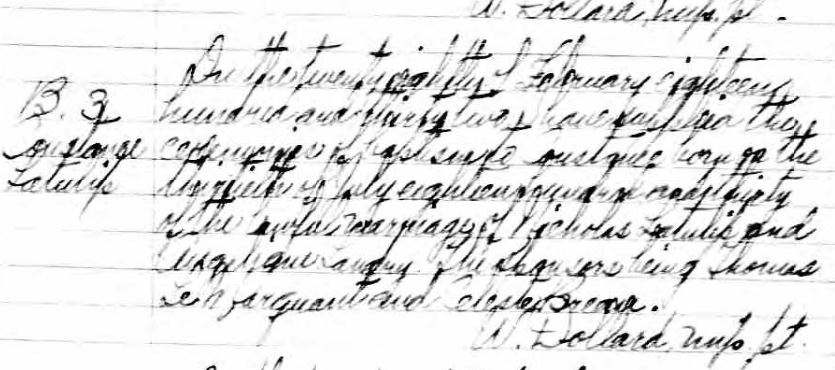 W. Dollard, Miss. pt.
On the twenty eighth of February eighteen
B. 3 hundred and thirty two I have supplied the
Constance ceremonies of baptism to Constance born on the
Latulip of July eighteen hundred and thirty
of the lawful marriage of Nicholas Latulip and
Angelique Landry. The sponsors being Thomas
and Celeste
W. Dollard, Miss. pt.